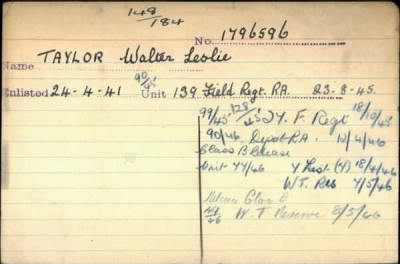 148/184
No. 1796596
Name TAYLOR Walter Leslie
90/45
Enlisted 24-4-41 Unit 139 Field Regt. RA. 23-8-45.
99/45 128/45 24. F. Regt 18/10/45
90/46 Depot R.A. 12/4/46
Class B Release
Unit 44/46 Y List (4) 18/4/46
W.T. Res 7/5/46
Release Class
W.T Reserve 8/5/46